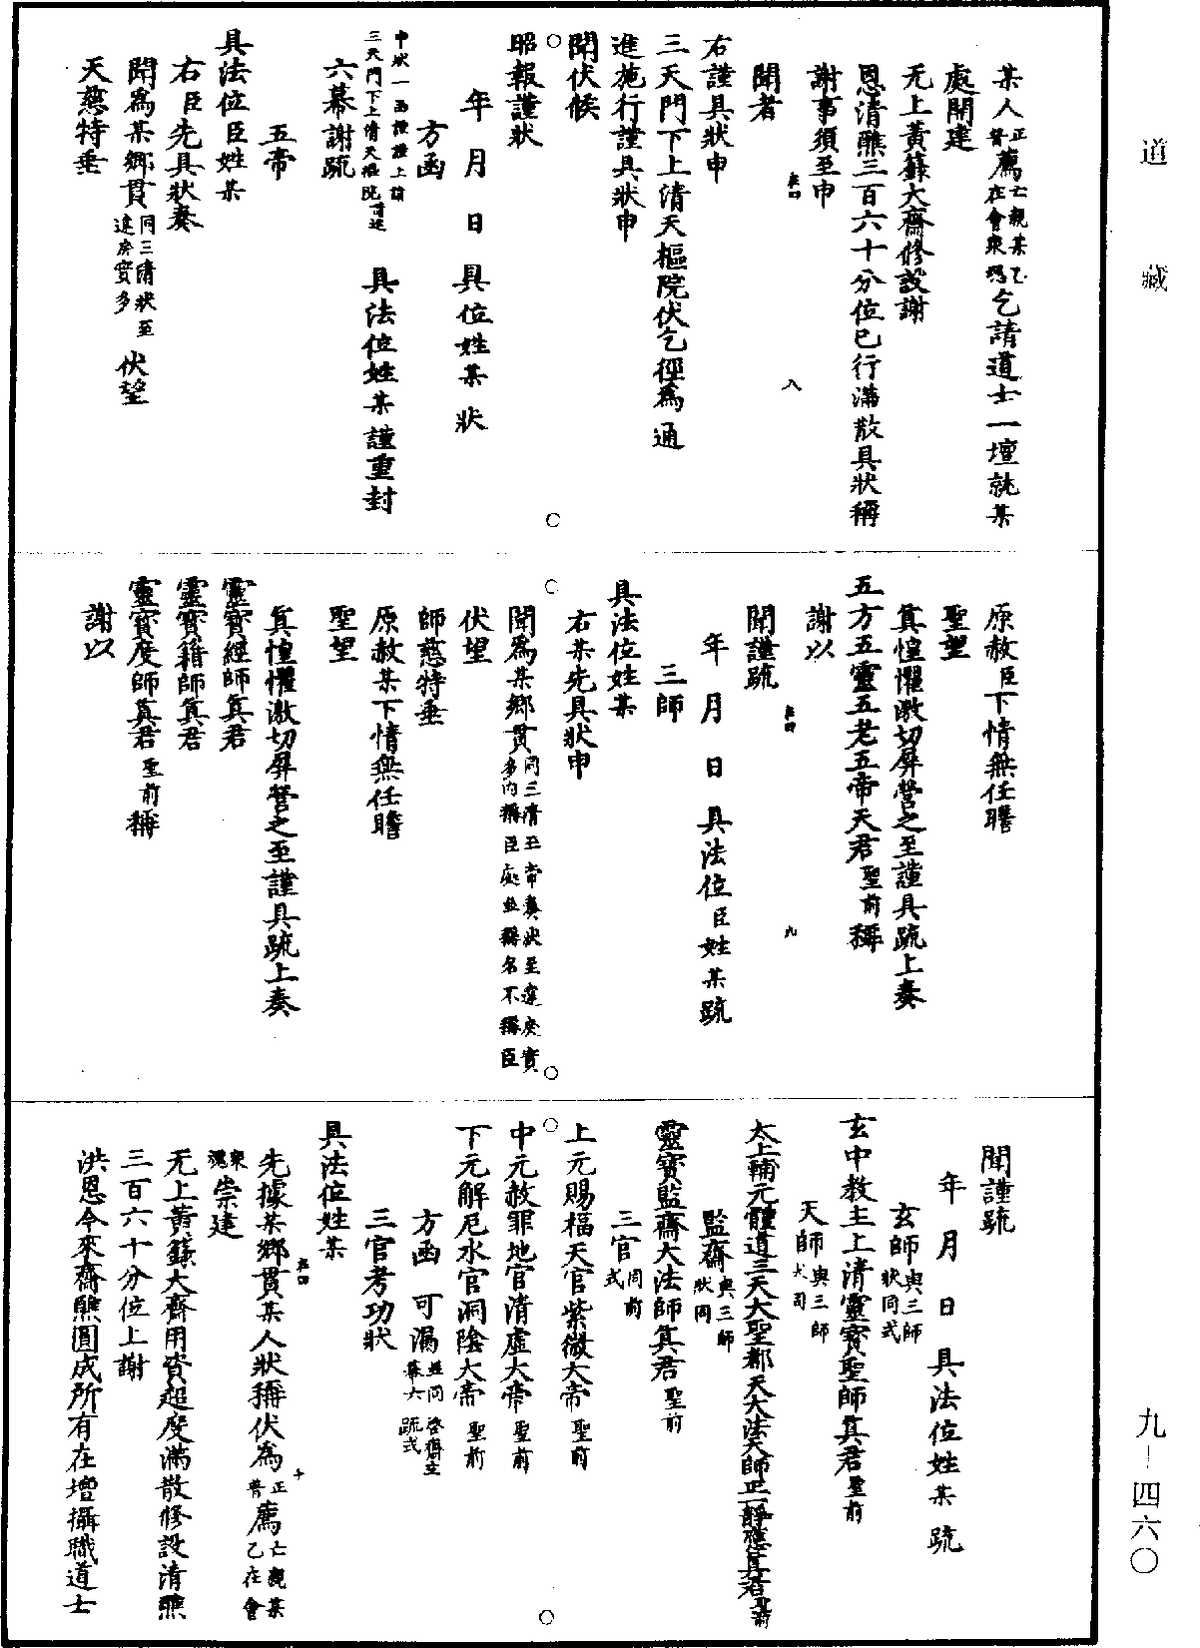 道藏
某人正薦亡親某乙乞請道士一壇就某
普在會衆魂
處開建
无上黃籙大齋修設謝
恩清醮三百六十分位已行滿散具狀稱
謝事須至申
聞者
右謹具狀申
三天門下上清天樞院伏乞徑爲通
進施行謹具狀申
聞伏候
昭報謹狀
年月日具位姓某狀
方函
申狀一函謹謹上請
三天門下上清天樞院
具法位姓某謹重封
六幕謝疏
五帝
具法位臣姓某
右臣先具狀奏
聞爲某鄉貫同三清狀至
違庚實多
伏望
天慈特垂
原赦臣下情無任瞻
聖望
真惶懼激切屏營之至謹具疏上奏
五方五靈五老五帝天君聖前稱
謝以
聞謹疏
年月日具法位臣姓某疏
三師
具法位姓某
右某先具狀申
聞爲某鄉貫同三清玉帝奏狀至違庚實
多內稱臣處並稱名不稱臣
伏望
師慈特垂
原赦某下情無任瞻
聖望
真惶懼激切屏營之至謹具疏上奏
靈寶經師真君
靈寶籍師真君
靈寶度師真君聖前稱
謝以
聞謹疏
年月日具法位姓某疏
玄師與三師
狀同式
玄中教主上清靈寶聖師真君聖前
天師與三師
太上輔元體道三天大聖都天大法天師正一靜應真君聖前
監齋與三師
狀同
靈寶監齋大法師真君聖前
三官同前
式
上元賜福天官紫微大帝聖前
中元赦罪地官清虛大帝聖前
下元解厄水官洞陰大帝聖前
方函可漏並同啓齋立
幕六疏式
三官考功狀
具法位姓某
先據某鄉貫某人狀稱伏爲正薦亡親某
普乙在會
衆魂崇建
无上黃籙大齋用資超度滿散修設清醮
三百六十分位上謝
洪恩今來齋醮圓成所有在壇攝職道士
八
九
十
九－四六〇